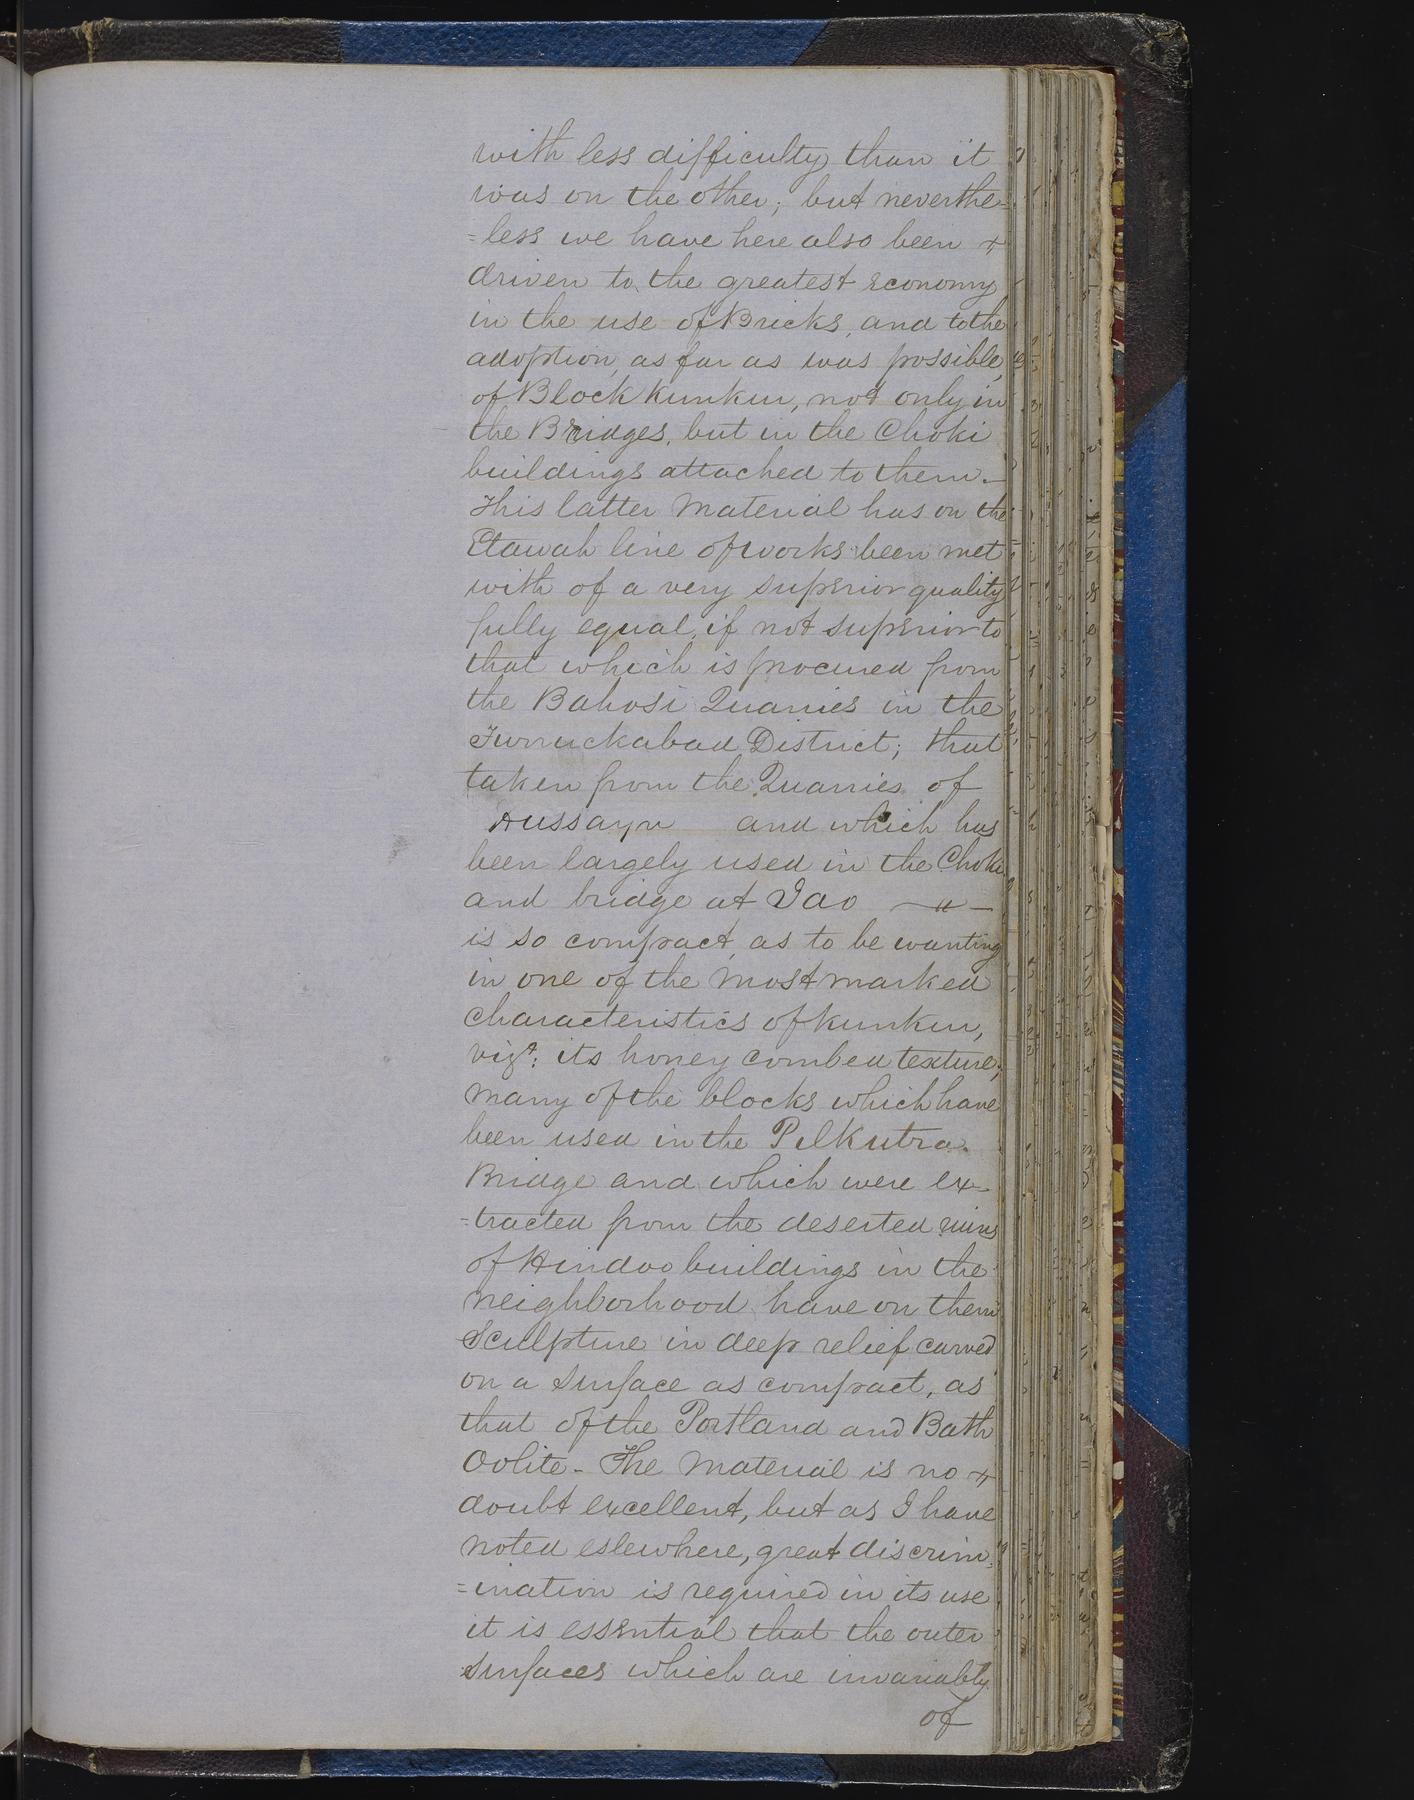 with less difficulty than it
was on the other; but neverthe=
=less we have here also been +
driven to the greatest economy
in the use of Bricks, and to the
adoption, as far as was possible,
of Block Kunkur, not only in
the Bridges, but in the Choki
buildings attached to them.—
This latter Material has on the
Etawah line of works been met
with of a very superior quality
fully equal, if not superior to
that which is procured from
the Bahosi Quarries in the
Furruckabad District; that
taken from the Quarries of
Hussayn and which has
been largely used in the Choki
and bridge at Jao — " —
is so compact, as to be wanting
in one of the most marked
characteristics of kunkur,
vizt: its honey combed texture;
Many of the blocks which have
been used in the Pilkutra
Bridge and which were ex-
=tracted from the deserted ruins
of Hindoo buildings in the
neighborhood have on them
Sculpture in deep relief carved
on a surface as compact, as
that of the Portland and Bath
Oolite - The Material is no +
doubt excellent, but as I have
noted eslewhere, great discrim
=ination is required in its use
it is essential that the outer
surfaces which are invariably
of